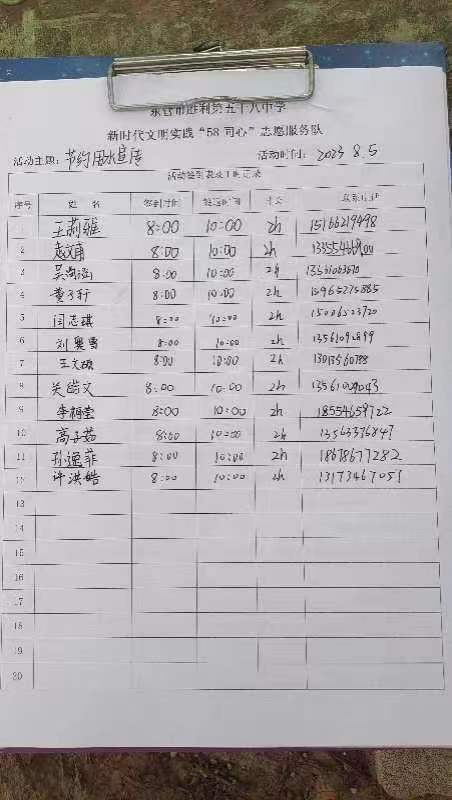 东营市胜利第五十八中学
新时代文明实践“58同心”志愿服务队
活动主题：节约用水宣传 活动时间：2023 8.5
活动签到表及工时记录
序号 姓 名 签到时间 签退时间
1 王莉雅 8:00 10:00 2h 15166219498
2 8:00 10:00 2h
3 8:00 10:00 2h
4 8:00 10:00 2h 15965275885
5 闫志琪 8:00 10:00 2h 15006523720
6 刘奥雪 8:00 10:00 2h 13561092899
7 8:00 10:00 2h
8 吴皓文 8:00 10:00 2h
9 李梓萱 8:00 10:00 2h 18554659722
10 高子茹 8:00 10:00 2h 13563376847
11 孙逸菲 8:00 10:00 2h 18678677282
12 许洪皓 8:00 10:00 2h 13173467051
13
14
15
16
17
18
19
20